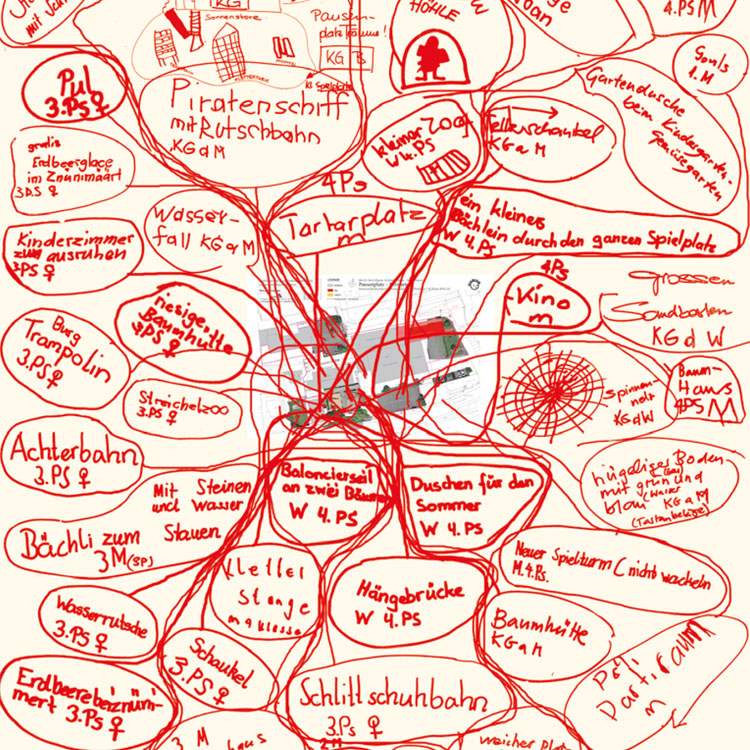 KG
Sonnenstore
Pausen-
platzträume!
KG B
HÖHLE
W
4.PS M
Pul
3.PS ♀
Piratenschiff
mit Rutschbahn
KG d M
kleiner Zoo
W 4.PS
Tellerschaukel
KG a M
1.M
Gartendusche
beim Kindergarten-
Gemüsegarten
gratis
Erdbeerglace
im Znünimärt
3.PS ♀
Wasser-
fall KG a M
4Ps
Tartanplatz
m
ein kleines
Bächlein durch den ganzen Spielplatz
W 4.PS
Kinderzimmer
zum ausruhen
3.PS ♀
riesige
Baumhütte
3.PS ♀
4Ps
Kino
m
grossen
Sandkasten
KG d W
Burg
Trampolin
3.PS ♀
Streichelzoo
3.PS ♀
Spinnen-
netz
KG d W
Baum-
haus
4PS M
Achterbahn
3.PS ♀
Mit Steinen
und Wasser
Bächli zum Stauen
3M (SP)
Balancierseil
an zwei Bäume
W 4.PS
Duschen für den
Sommer
W 4.PS
hügeliger Boden
mit grün und
blau
KG a M
Kletter
Stange
Hängebrücke
W 4.PS
Neuer Spielturm (nicht wackeln
M.4.Ps.
Wasserrutsche
3.PS ♀
Schaukel
3.PS ♀
Baumhütte
KG a M
3.PS ♀
Schlittschuhbahn
3.Ps ♀
2M
Partiraum
m
3 M
haus
weicher Platz